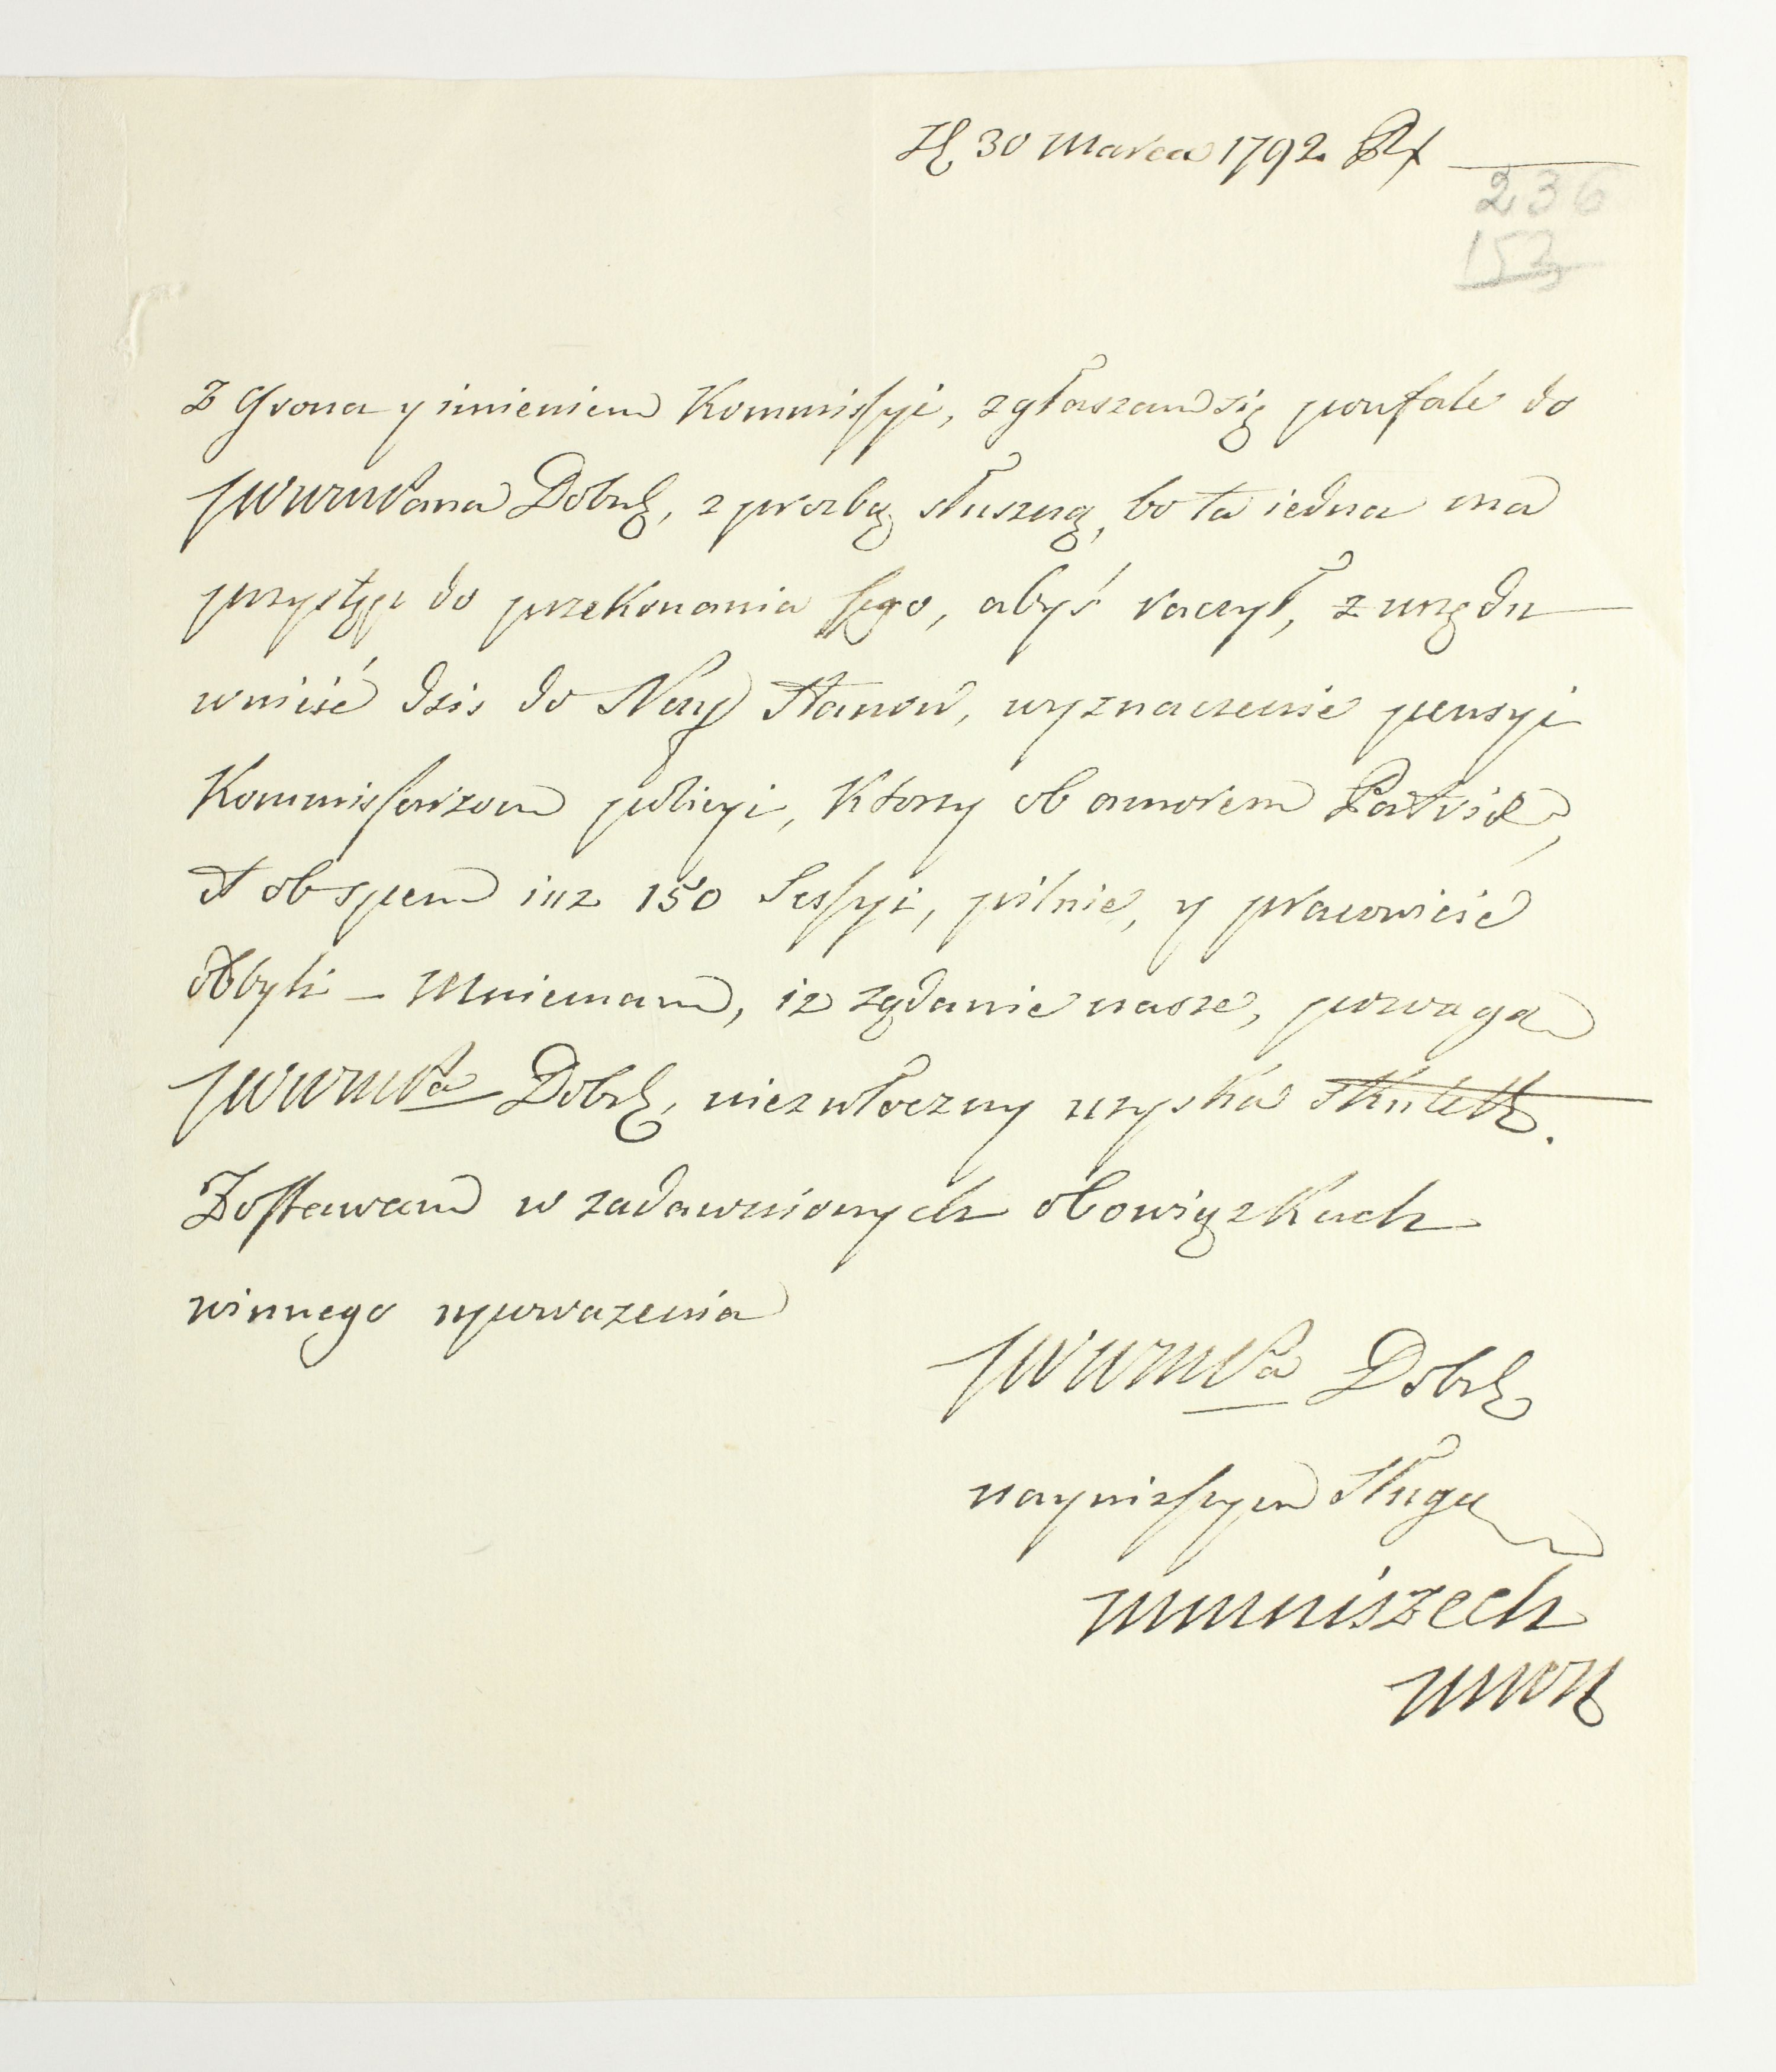 30 Marca 1792
236
153
Z Grona y imieniem Kommissyi, zgłaszam się poufale do
JWWMPana Dobr, z prozbą słuszną, bo ta iedna ma
przystęp do przekonania Jego, abyś raczył, z urzędu
wnieść dziś do Nay Stanow, wyznaczenie pensyi
Kommissarzom policyi, ktorzy ob amorem Patriæ,
et ob spem iuz 150 Sessyi, pilnie, y pracowicie
odbyli – Mniemam, iz ządanie nasze, powaga
JWWMPa Dobr, niezwłoczny uzyska skutek.
Zostawam w zadawnionych obowiązkach
winnego upowazenia
JWWMPa Dobr
nayniższym Sługą
MMniszech
MWK